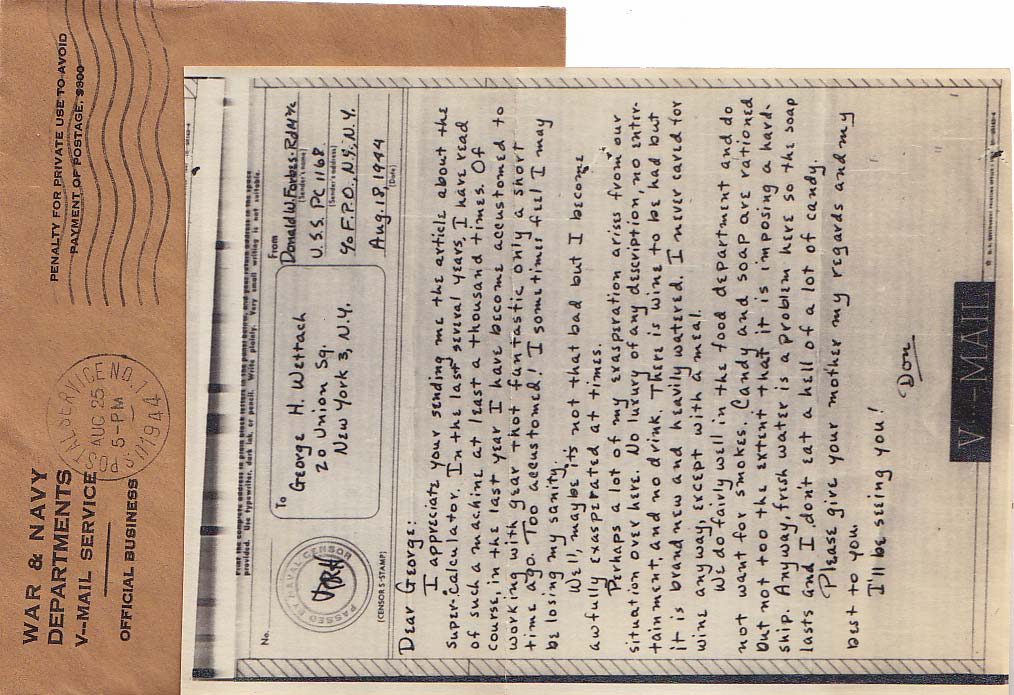 WAR & NAVY
DEPARTMENTS
V--MAIL SERVICE
OFFICIAL BUSINESS
PENALTY FOR PRIVATE USE TO AVOID
PAYMENT OF POSTAGE, $300
U.S. POSTAL SERVICE NO. 1
AUG 25
5-PM
1944
Print the complete address in plain block letters in the panel below, and your return address in the space
provided. Use typewriter, dark ink, or pencil. Write plainly. Very small writing is not suitable.
No.
PASSED BY NAVAL CENSOR
(CENSOR'S STAMP)
To
George H. Wettach
20 Union Sq.
New York 3, N.Y.
From
Donald W. Forbes-RdM3/c
(Sender's name)
U.S.S. PC 1168
(Sender's address)
c/o F.P.O., N.Y., N.Y.
Aug. 18, 1944
(Date)
Dear George:
I appreciate your sending me the article about the
super-calculator. In the last several years, I have read
of such a machine at least a thousand times. Of
course, in the last year I have become accustomed to
working with gear thot funtastic only a short
time ago. Too accustomed! I sometimes feel I may
be losing my sanity.
Well, maybe its not that bad but I become
awfully exasperated at times.
Perhaps a lot of my exasperation arises from our
situation over here. No luxury of any description, no enter-
tainment, and no drink. There is wine to be had but
it is brand new and heavily watered. I never cared for
wine anyway, except with a meal.
We do fairly well in the food department and do
not want for smokes. Candy and soap are rationed
but not too the extent that it is imposing a hard-
ship. Anyway, fresh water is a problem here so the soap
lasts and I dont eat a hell of a lot of candy.
Please give your mother my regards and my
best to you.
I'll be seeing you!
Don
V···-MAIL